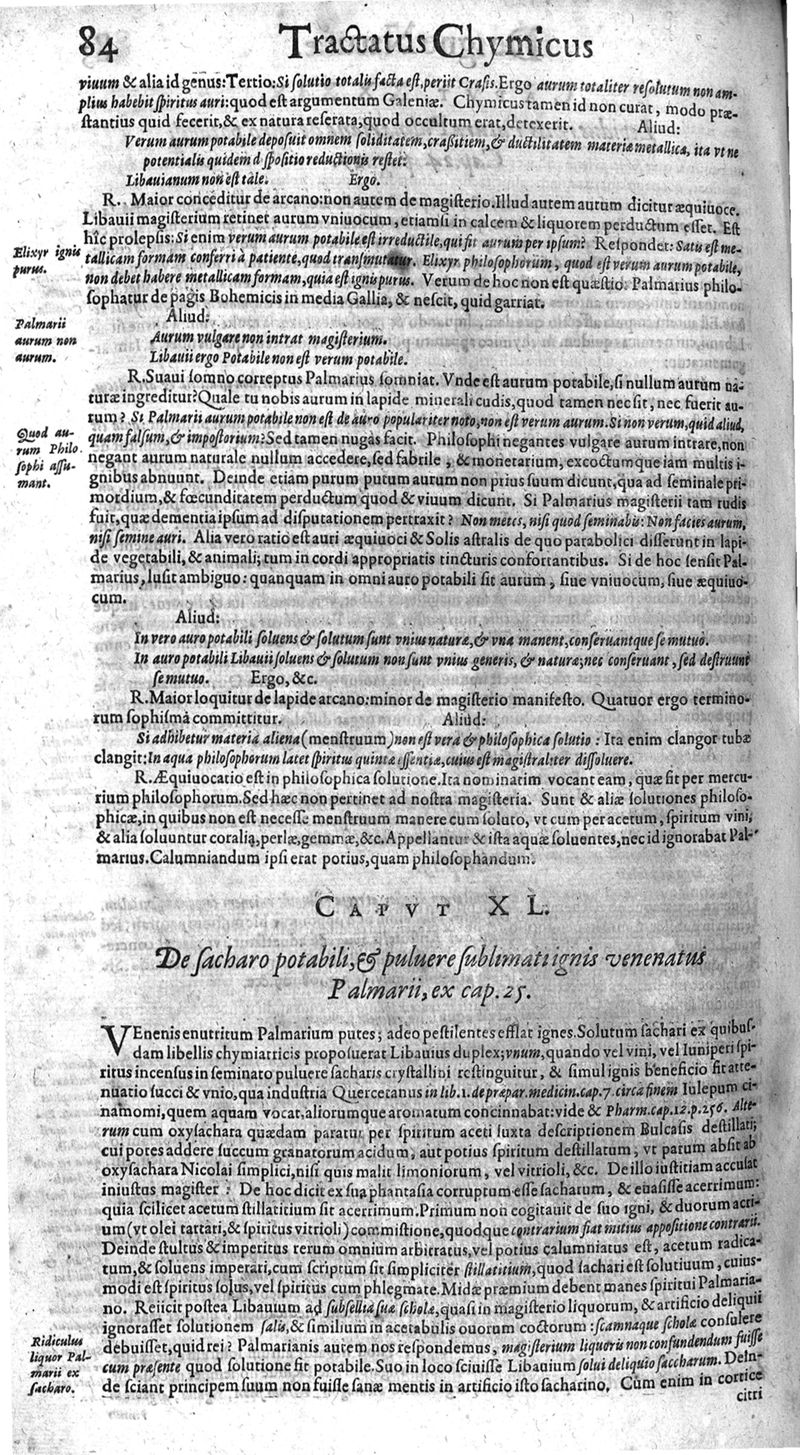 84 Tractatus Chymicus
viuum & alia id genus: Tertio: Si solutio totalis facta est, periit Crasis. Ergo aurum totaliter resolutum non am-
plius habebit spiritus auri: quod est argumentum Galeniæ. Chymicus tamen id non curat, modo præ-
stantius quid fecerit, & ex natura referata, quod occultum erat, detexerit. Aliud:
Verum aurum potabile deposuit omnem soliditatem, crassitiem, & ductilitatem materiæ metallicæ, ita vt ne
potentialis quidem dispositio reductionis restet:
Libauianum non est tale. Ergo.
R. Maior conceditur de arcano: non autem de magisterio. Illud autem aurum dicitur æquiuoce.
Libauii magisterium retinet aurum vniuocum, etiamsi in calcem & liquorem perductum esset. Est
hîc prolepsis: Si enim verum aurum potabile est irreductile, qui fit aurum per ipsum? Respondet: Satis est me-
Elixyr ignis
purus.
tallicam formam conferri à patiente, quod transmutatur. Elixyr philosophorum, quod est verum aurum potabile,
non debet habere metallicam formam, quia est ignis purus. Verum de hoc non est quæstio. Palmarius philo-
sophatur de pagis Bohemicis in media Gallia, & nescit, quid garriat.
Aliud:
Palmarii
aurum non
aurum.
Aurum vulgare non intrat magisterium.
Libauii ergo Potabile non est verum potabile.
R. Suaui somno correptus Palmarius somniat. Vnde est aurum potabile, si nullum aurum na-
turæ ingreditur? Quale tu nobis aurum in lapide minerali cudis, quod tamen nec fit, nec fuerit au-
rum? Si Palmarii aurum potabile non est de auro populariter noto, non est verum aurum. Si non verum, quid aliud,
Quod au-
rum Philo
sophi assu-
mant.
quam falsum, & impostorium? Sed tamen nugas facit. Philosophi negantes vulgare aurum intrare, non
negant aurum naturale nullum accedere, sed fabrile, & monetarium, excoctumque iam multis i-
gnibus abnuunt. Deinde etiam purum putum aurum non prius suum dicunt, qua ad seminale pri-
mordium, & fœcunditatem perductum quod & viuum dicunt. Si Palmarius magisterii tam rudis
fuit, quæ dementia ipsum ad disputationem pertraxit? Non metes, nisi quod seminabis: Non facies aurum,
nisi semine auri. Alia vero ratio est auri æquiuoci & Solis astralis de quo parabolici disserunt in lapi-
de vegetabili, & animali; tum in cordi appropriatis tincturis confortantibus. Si de hoc sensit Pal-
marius, lusit ambiguo: quanquam in omni auro potabili sit aurum, siue vniuocum, siue æquiuo-
cum.
Aliud:
In vero auro potabili soluens & solutum sunt vnius naturæ, & vna manent, conseruantque se mutuo.
In auro potabili Libauii soluens & solutum non sunt vnius generis, & naturæ; nec conseruant, sed destruunt
se mutuo. Ergo, &c.
R. Maior loquitur de lapide arcano: minor de magisterio manifesto. Quatuor ergo termino-
rum sophisma committitur. Aliud:
Si adhibetur materia aliena (menstruum) non est vera & philosophica solutio: Ita enim clangor tubæ
clangit: In aqua philosophorum latet spiritus quintæ essentiæ, cuius est magistraliter dissoluere.
R. Æquiuocatio est in philosophica solutione. Ita nominatim vocant eam, quæ fit per mercu-
rium philosophorum. Sed hæc non pertinet ad nostra magisteria. Sunt & aliæ solutiones philoso-
phicæ, in quibus non est necesse menstruum manere cum soluto, vt cum per acetum, spiritum vini,
& alia soluuntur coralia, perlæ, gemmæ, &c. Appellantur & ista aquæ soluentes, nec id ignorabat Pal-
marius. Calumniandum ipsi erat potius, quam philosophandum.
CAPVT XL.
De sacharo potabili, & puluere sublimati ignis venenatus
Palmarii, ex cap. 25.
VEnenis enutritum Palmarium putes; adeo pestilentes efflat ignes. Solutum sachari ex quibus-
dam libellis chymiatricis proposuerat Libauius duplex; vnum, quando vel vini, vel Iuniperi spi-
ritus incensus in seminato puluere sacharis crystallini restinguitur, & simul ignis beneficio fit atte-
nuatio succi & vnio, qua industria Quercetanus in lib. 1. de præpar. medicin. cap. 7. circa finem Iulepum ci-
namomi, quem aquam vocat, aliorumque aromatum concinnabat: vide & Pharm. cap. 12. p. 256. Alte-
rum cum oxysachara quædam paratur per spiritum aceti iuxta descriptionem Bulcasis destillati,
cui potes addere succum granatorum acidum, aut potius spiritum destillatum, vt parum absit ab
oxysachara Nicolai simplici, nisi quis malit limoniorum, vel vitrioli, &c. De illo iustitiam accusat
iniustus magister: De hoc dicit ex sua phantasia corruptum esse sacharum, & euasisse acerrimum:
quia scilicet acetum stillatitium sit acerrimum. Primum non cogitauit de suo igni, & duorum acri-
um (vt olei tartari, & spiritus vitrioli) commistione, quodque contrarium fiat mitius appositione contrarii.
Deinde stultus & imperitus rerum omnium arbitratus, vel potius calumniatus est, acetum radica-
tum, & soluens imperari, cum scriptum sit simpliciter stillatitium, quod sachari est solutiuum, cuius-
modi est spiritus solus, vel spiritus cum phlegmate. Midæ præmium debent manes spiritui Palmaria-
no. Reiicit postea Libauium ad subsellia suæ scholæ, quasi in magisterio liquorum, & artificio deliquii
ignorasset solutionem salis, & similium in acetabulis ouorum coctorum: scamnaque scholæ consulere
Ridiculus
liquor Pal-
marii ex
sacharo.
debuisset, quid rei? Palmarianis autem nos respondemus, magisterium liquoris non confundendum fuisse
cum præsente quod solutione fit potabile. Suo in loco sciuisse Libauium solui deliquio saccharum. Dein-
de sciant principem suum non fuisse sanæ mentis in artificio isto sacharino. Cùm enim in cortice
citri